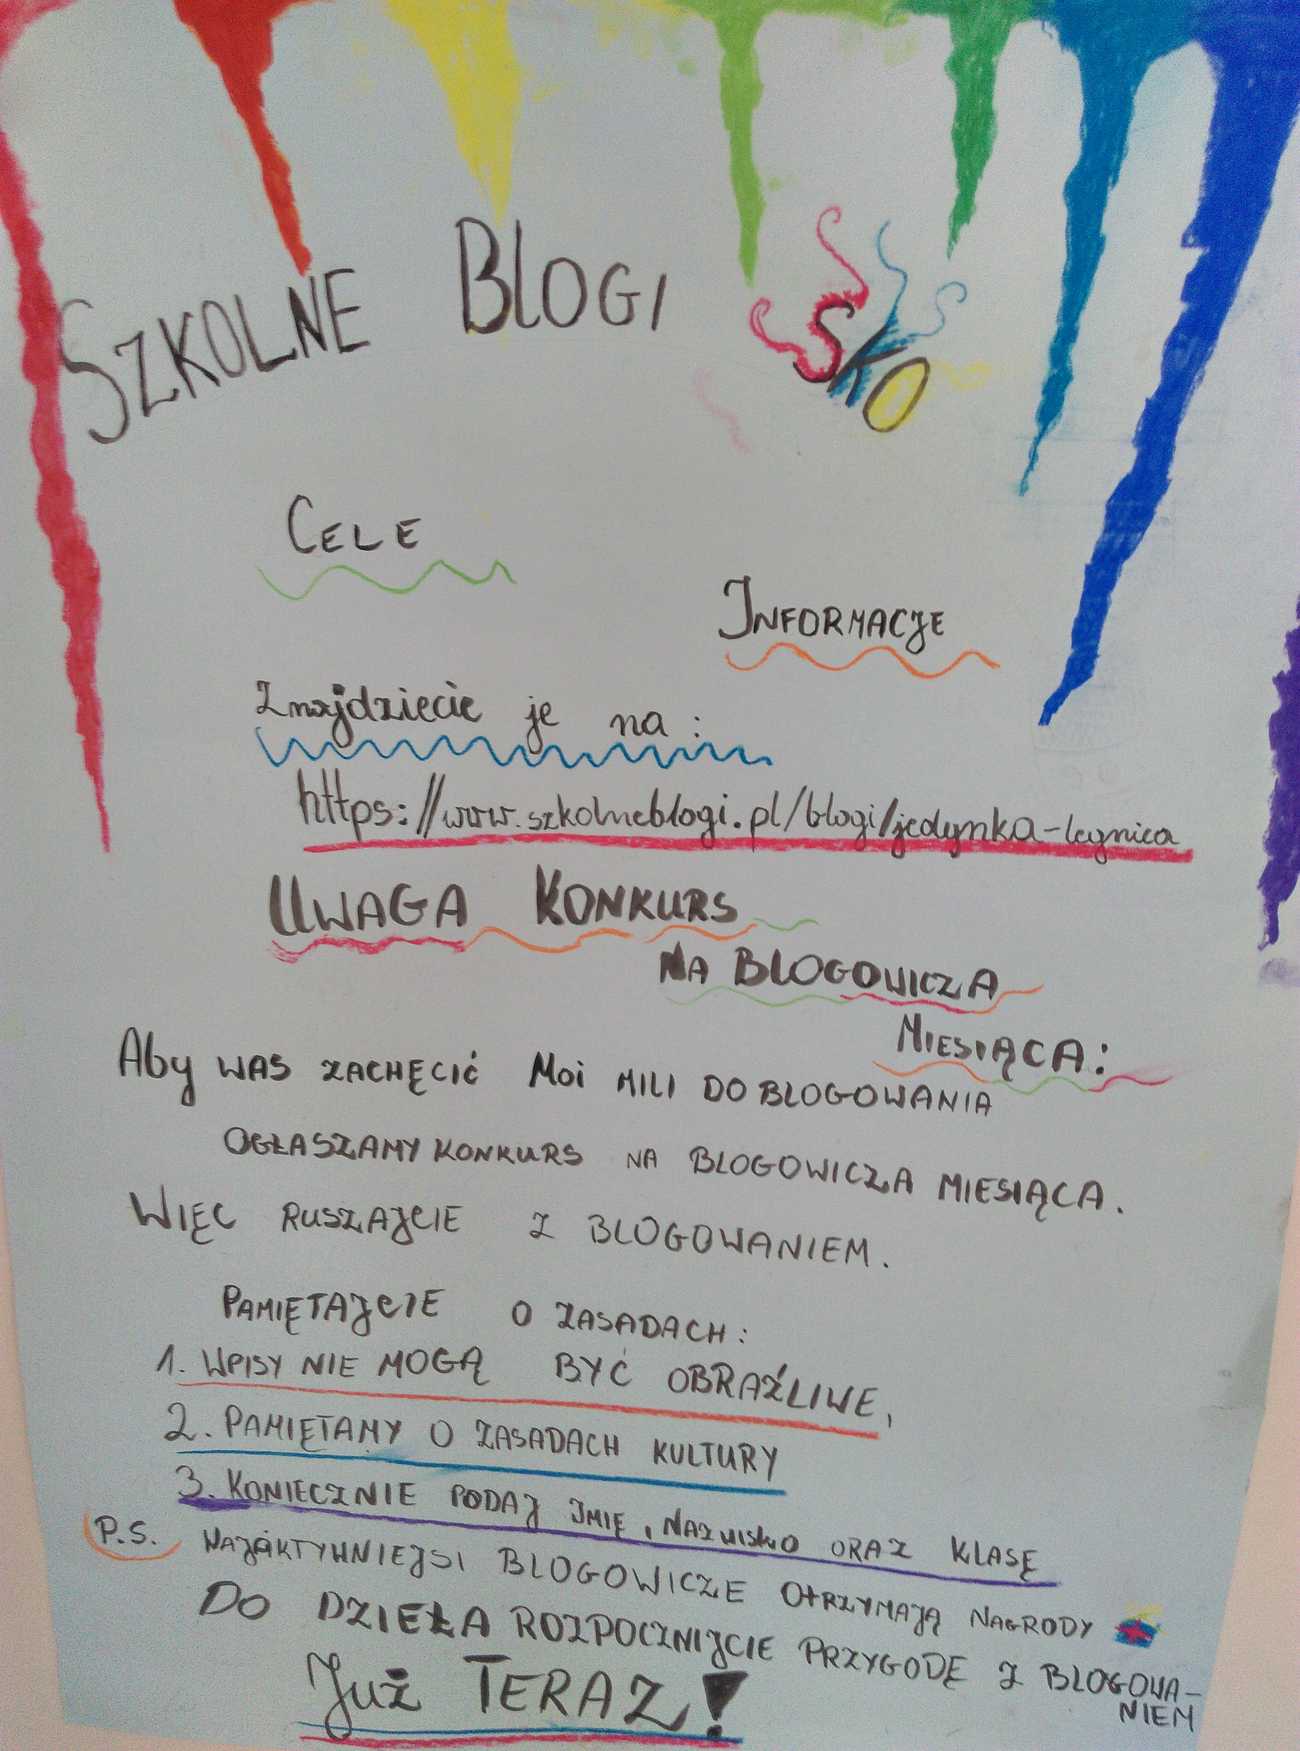 SZKOLNE BLOGI SKO
CELE
INFORMACJE
Znajdziecie je na:
https://www.szkolneblogi.pl/blogi/jedynka-legnica
UWAGA KONKURS
NA BLOGOWICZA
MIESIĄCA:
Aby WAS ZACHĘCIĆ MOi MILI DO BLOGOWANIA
OGŁASZAMY KONKURS NA BLOGOWICZA MIESIĄCA.
WIĘC RUSZAJCIE Z BLOGOWANIEM.
PAMIĘTAJCIE O ZASADACH:
1. WPISY NIE MOGĄ BYĆ OBRAŹLIWE,
2. PAMIĘTAMY O ZASADACH KULTURY
3. KONIECZNIE PODAJ IMIĘ, NAZWISKO ORAZ KLASĘ
P.S. NAJAKTYWNIEJSI BLOGOWICZE OTRZYMAJĄ NAGRODY
DO DZIEŁA ROZPOCZNIJCIE PRZYGODĘ Z BLOGOWA-
NIEM
JUŻ TERAZ!